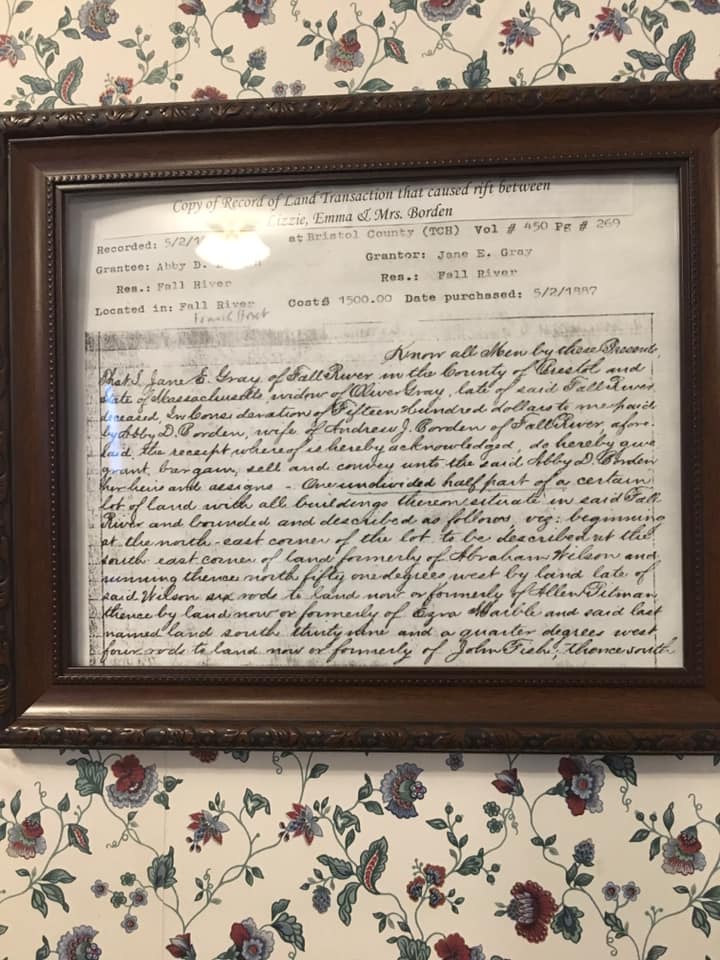 Copy of Record of Land Transaction that caused rift between
Lizzie, Emma & Mrs. Borden
Recorded: 5/2/1 at Bristol County (TCH) Vol # 450 Pg # 269
Grantee: Abby D. Grantor: Jane E. Gray
Res.: Fall River Res.: Fall River
Located in: Fall River Cost$ 1500.00 Date purchased: 5/2/1887
Know all Men by these Presents,
that I, Jane E. Gray, of Fall River in the County of Bristol and
State of Massachusetts, widow of Oliver Gray, late of said Fall River
deceased, In Consideration of Fifteen Hundred dollars to me paid
by Abby D. Borden, wife of Andrew J. Borden of Fall River, afore-
said, the receipt whereof is hereby acknowledged, do hereby give
grant, bargain, sell and convey unto the said Abby D. Borden
her heirs and assigns - One undivided half part of a certain
lot of land with all buildings thereon situate in said Fall
River and bounded and described as follows, viz: beginning
at the north-east corner of the lot to be described at the
south east corner of land formerly of Abraham Wilson and
running thence north fifty one degrees west by land late of
said Wilson six rods to land now or formerly of Allen Pitman
thence by land now or formerly of Ezra Marble and said last
named land south thirty nine and a quarter degrees west,
four rods to land now or formerly of John Fish; thence south